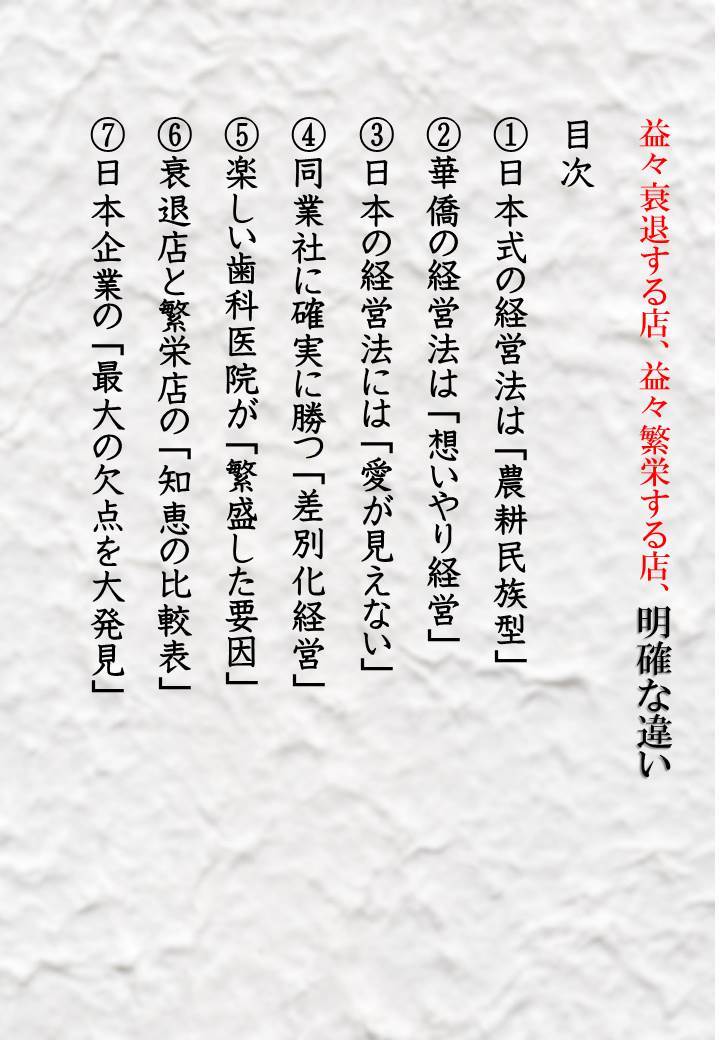 益々衰退する店、益々繁栄する店、明確な違い
目次
①日本式の経営法は「農耕民族型」
②華僑の経営法は「想いやり経営」
③日本の経営法には「愛が見えない」
④同業社に確実に勝つ「差別化経営」
⑤楽しい歯科医院が「繁盛した要因」
⑥衰退店と繁栄店の「知恵の比較表」
⑦日本企業の「最大の欠点を大発見」